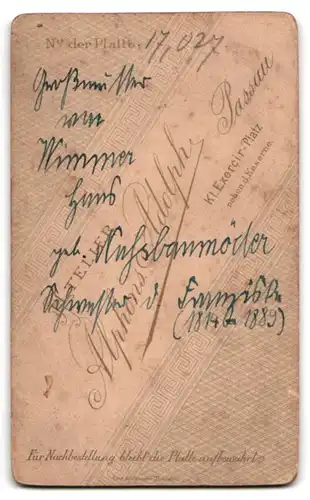 No. der Platte: 17,027
Großmutter
von
Wimmer
Hans
geb. Nußbaumöder
Schwester d. Franziska
(1814-1889)
ATELIER
Alphons Adolph
Passau
Kl. Exercir-Platz
neben d. Kaserne.
Für Nachbestellung bleibt die Platte aufbewahrt.